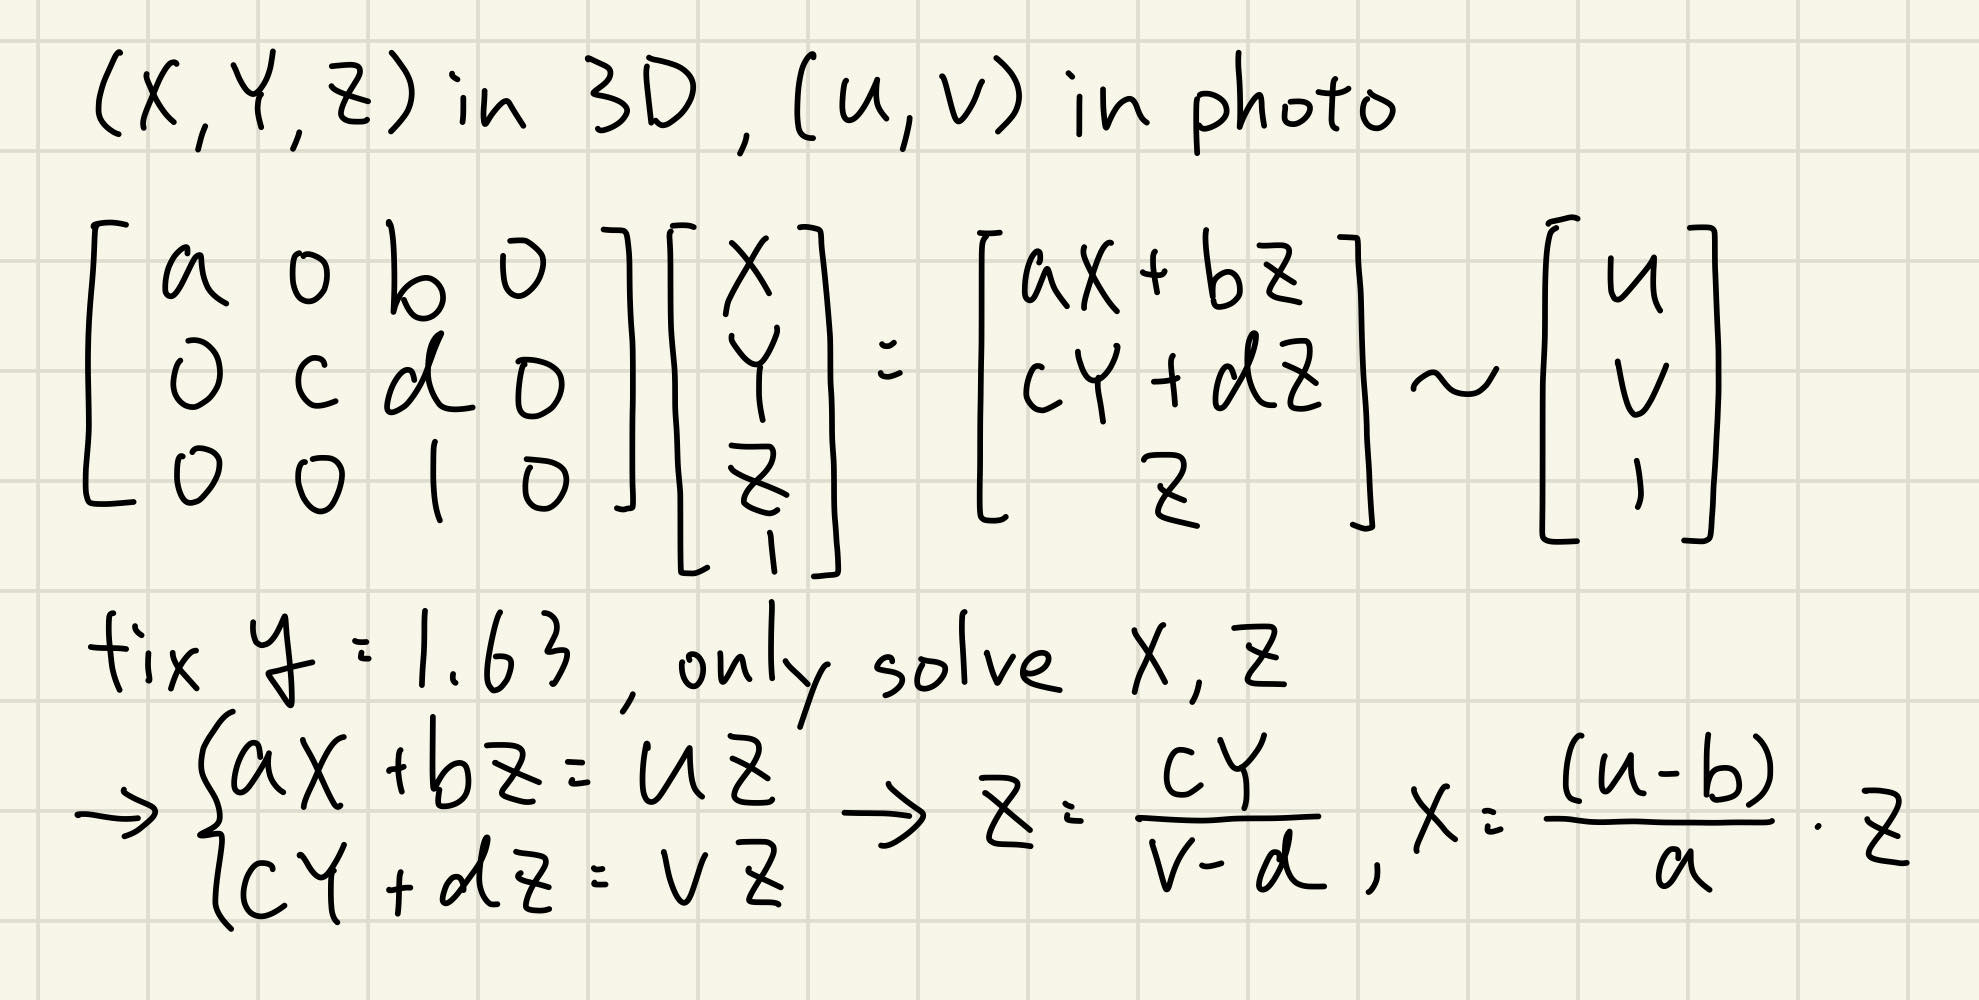 (X, Y, Z) in 3D, (u, v) in photo
[a 0 b 0; 0 c d 0; 0 0 1 0] [X; Y; Z; 1] = [aX + bZ; cY + dZ; Z] ~ [u; v; 1]
fix y = 1.63, only solve X, Z
→ { aX + bZ = uZ; cY + dZ = vZ → Z = cY / (v - d), X = (u - b) / a · Z